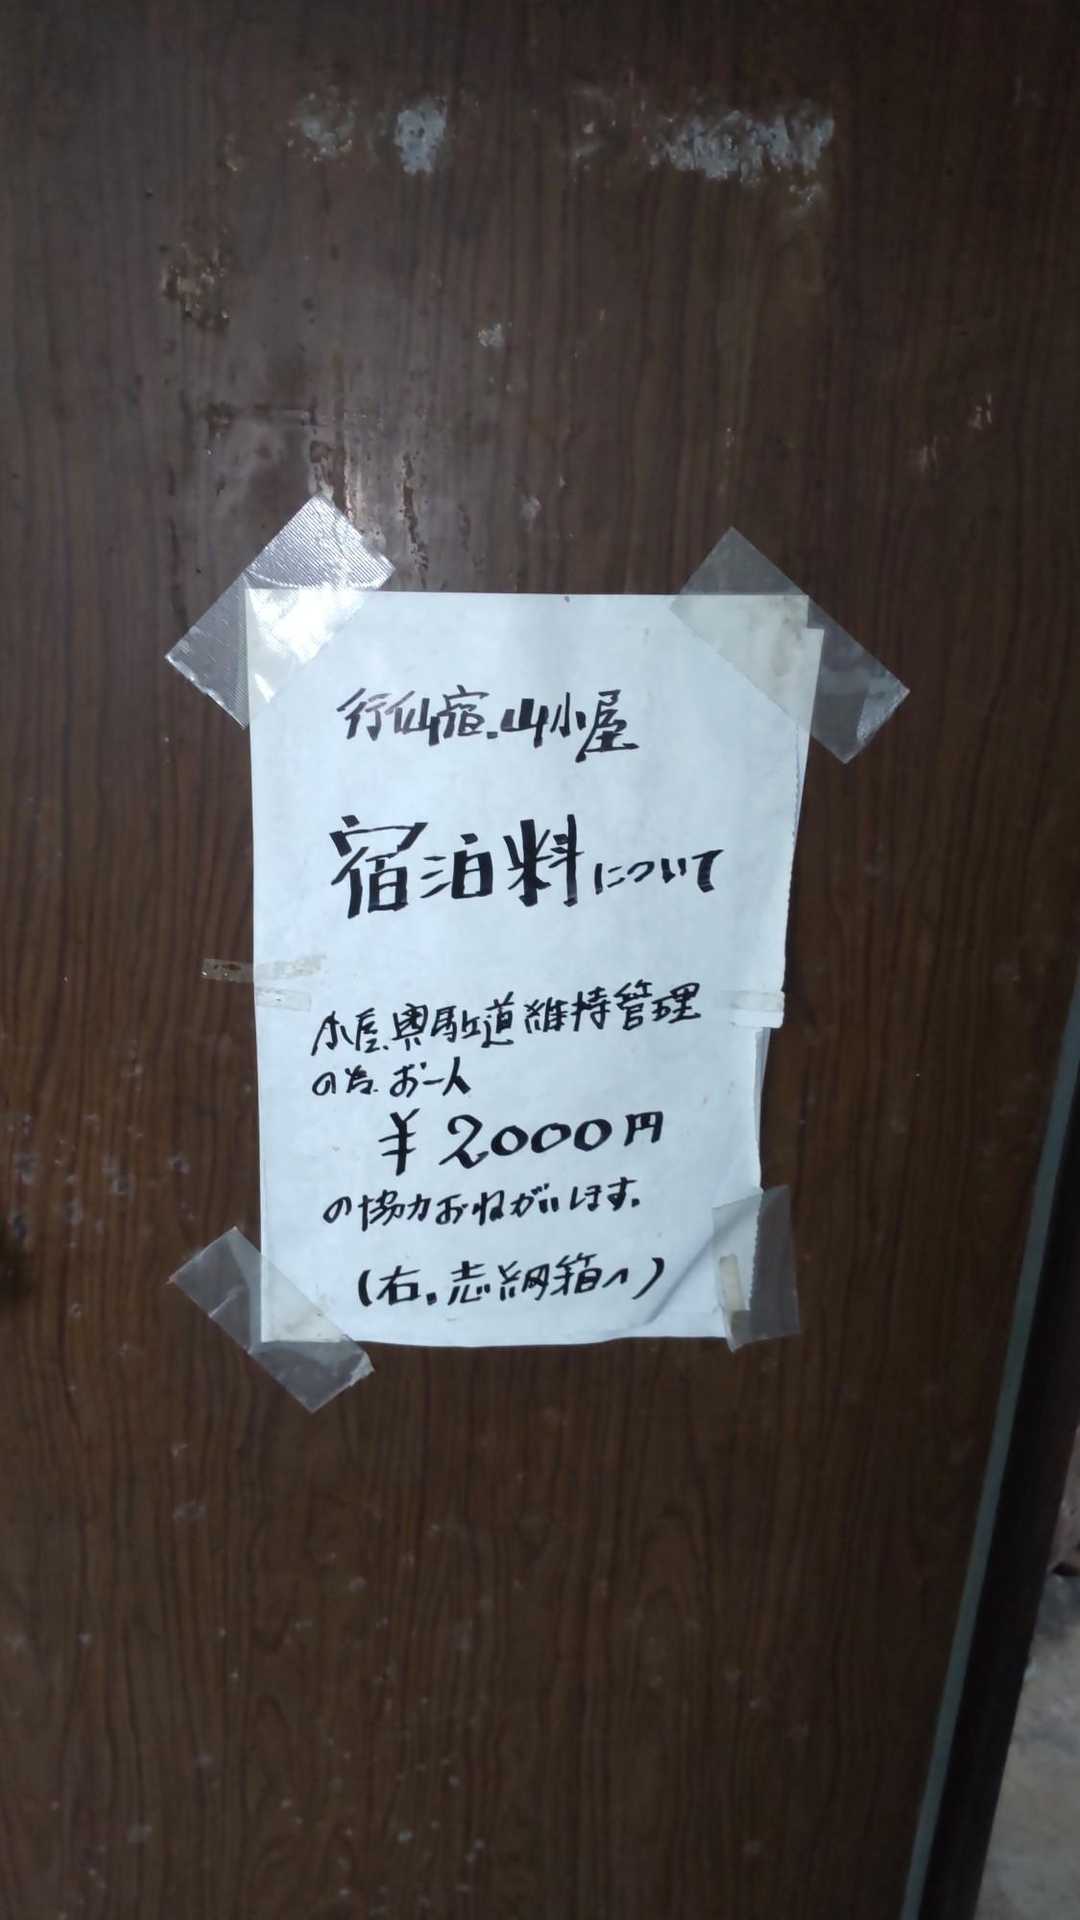 行仙宿.山小屋
宿泊料について
小屋.奥駈道維持管理
の為.お一人
¥2000円
の協力おねがいします。
(右.志納箱へ)